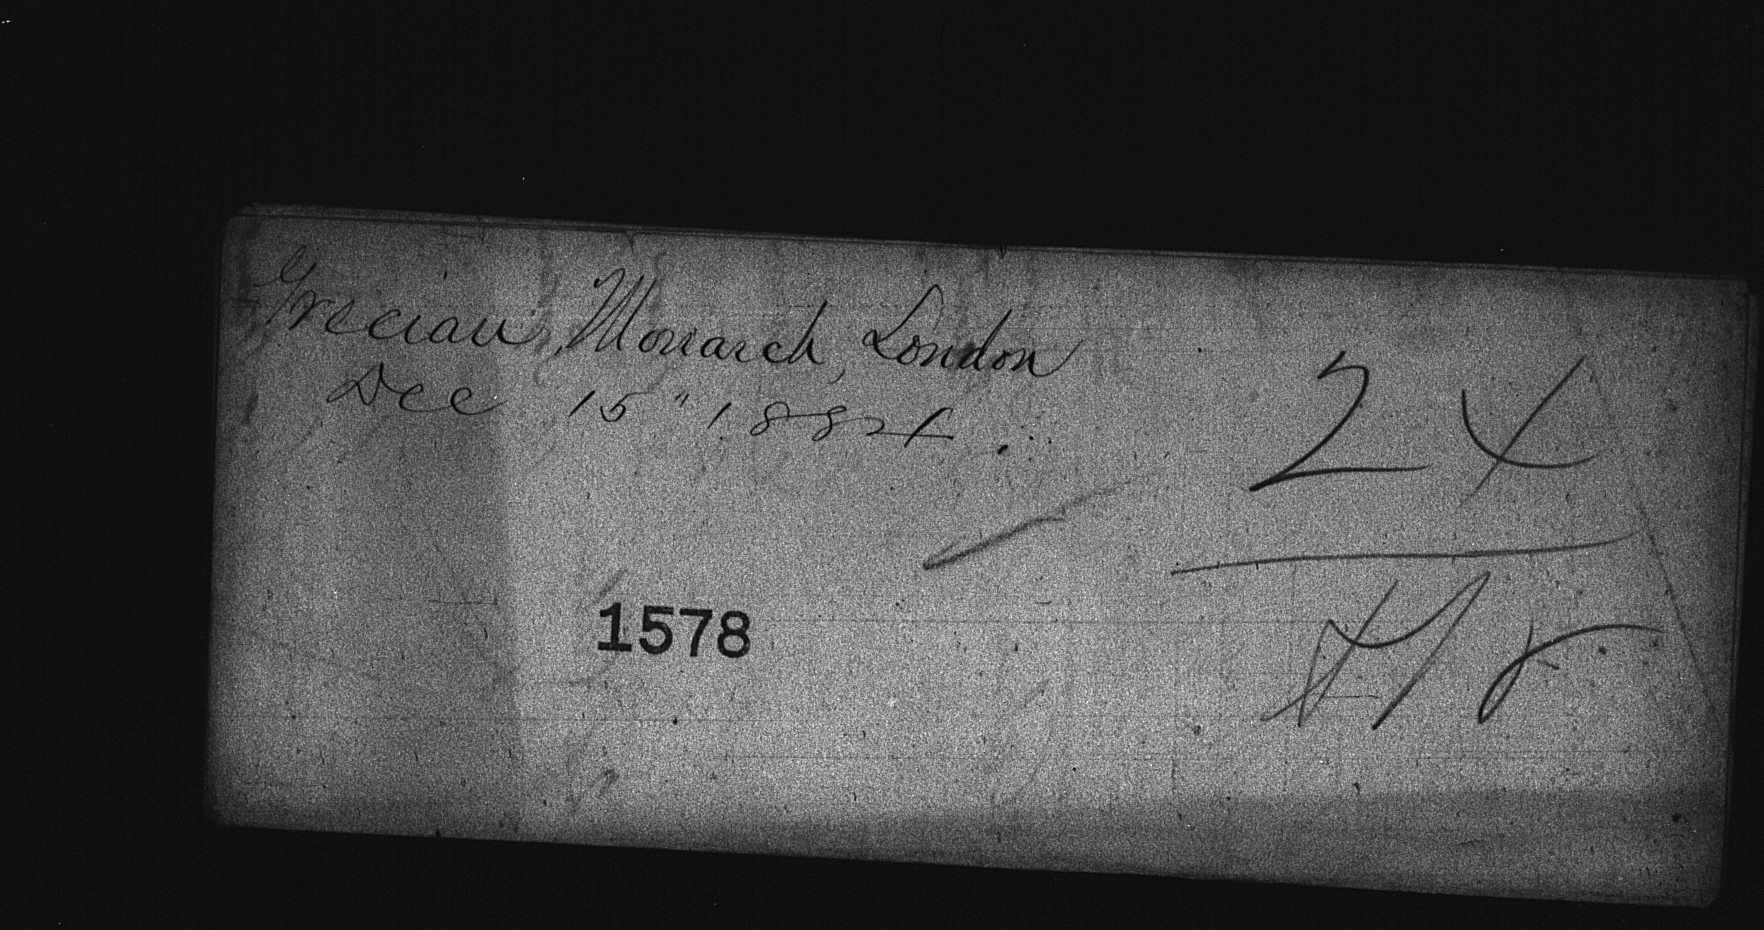 Grecian Monarch, London
Dec 15" 1884.
24
1578